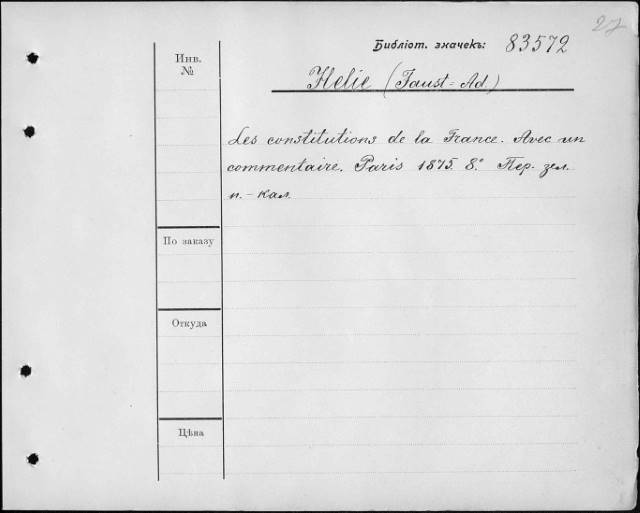 27
Библіот. значекъ: 83572
Инв.
№
Helie (Faust=Ad.)
Les constitutions de la France. Avec un
commentaire. Paris 1875. 8.° Пер. зел.
п.-кал.
По заказу
Откуда
Цѣна